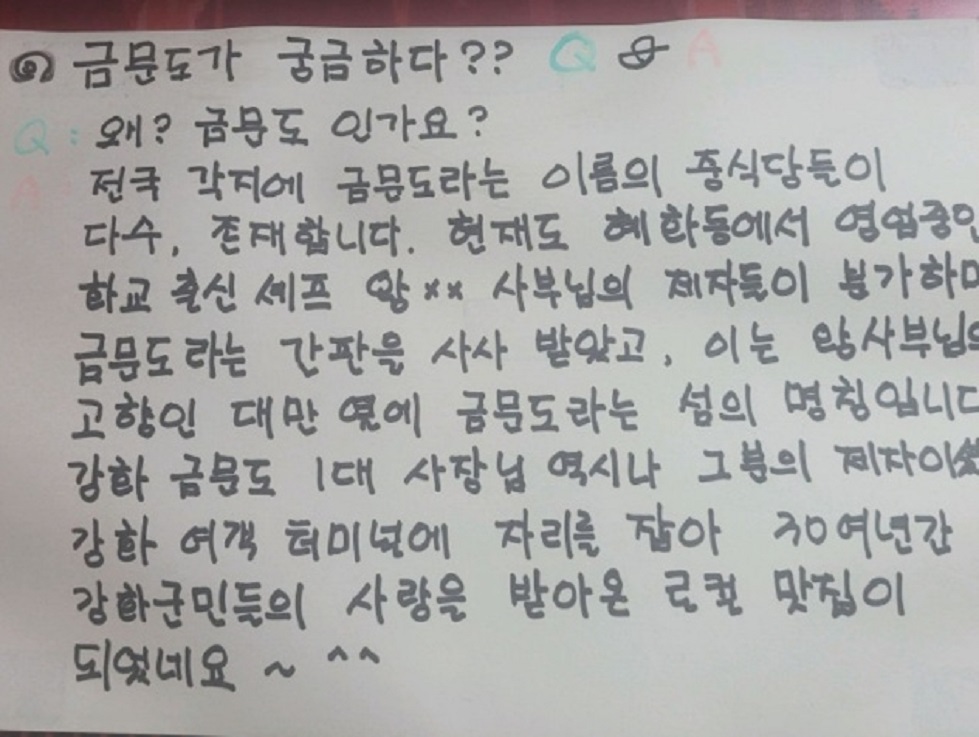 ① 금문도가 궁금하다?? Q & A
Q: 왜? 금문도 인가요?
A: 전국 각지에 금문도라는 이름의 중식당들이
다수, 존재합니다. 현재도 혜화동에서 영업중인
화교 출신 셰프 왕×× 사부님의 제자들이 분가하며
금문도라는 간판을 사사 받았고, 이는 왕사부님의
고향인 대만 옆에 금문도라는 섬의 명칭입니다
강화 금문도 1대 사장님 역시나 그분의 제자이
강화 여객 터미널에 자리를 잡아 30여년간
강화군민들의 사랑을 받아온 로컬 맛집이
되었네요 ~ ^^